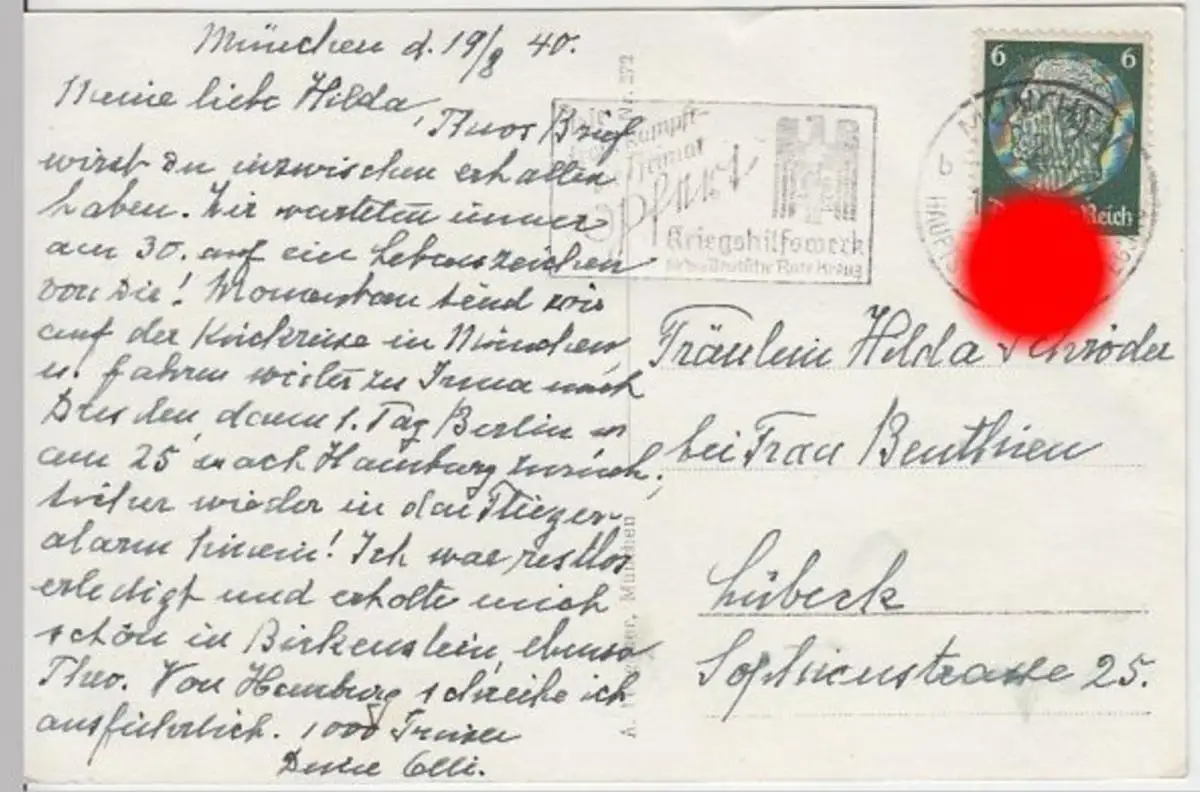 München d. 19/8 40.
Meine liebe Hilda,
Theos Brief
wirst Du inzwischen erhalten
haben. Wir warteten immer
am 30. auf ein Lebenszeichen
von Dir! Momentan sind wir
auf der Rückreise in München
u. fahren weiter zu Irma nach
Dresden, dann 1. Tag Berlin u
am 25 nach Hamburg zurück,
wieder in den Flieger-
alarm hinein! Ich war restlos
erledigt und erholte mich
schön in Birkenstein, ebenso
Theo. Von Hamburg schreibe ich
ausführlich. 1000 Grüsse
Deine Elli.
Nr. 272
München
kämpft
Heimat
opfert
Kriegshilfswerk
für das Deutsche Rote Kreuz
6 6
Reich
MÜNCHEN
b
Fräulein Hilda Schröder
bei Frau Benthien
Lübeck
Sophienstrasse 25.